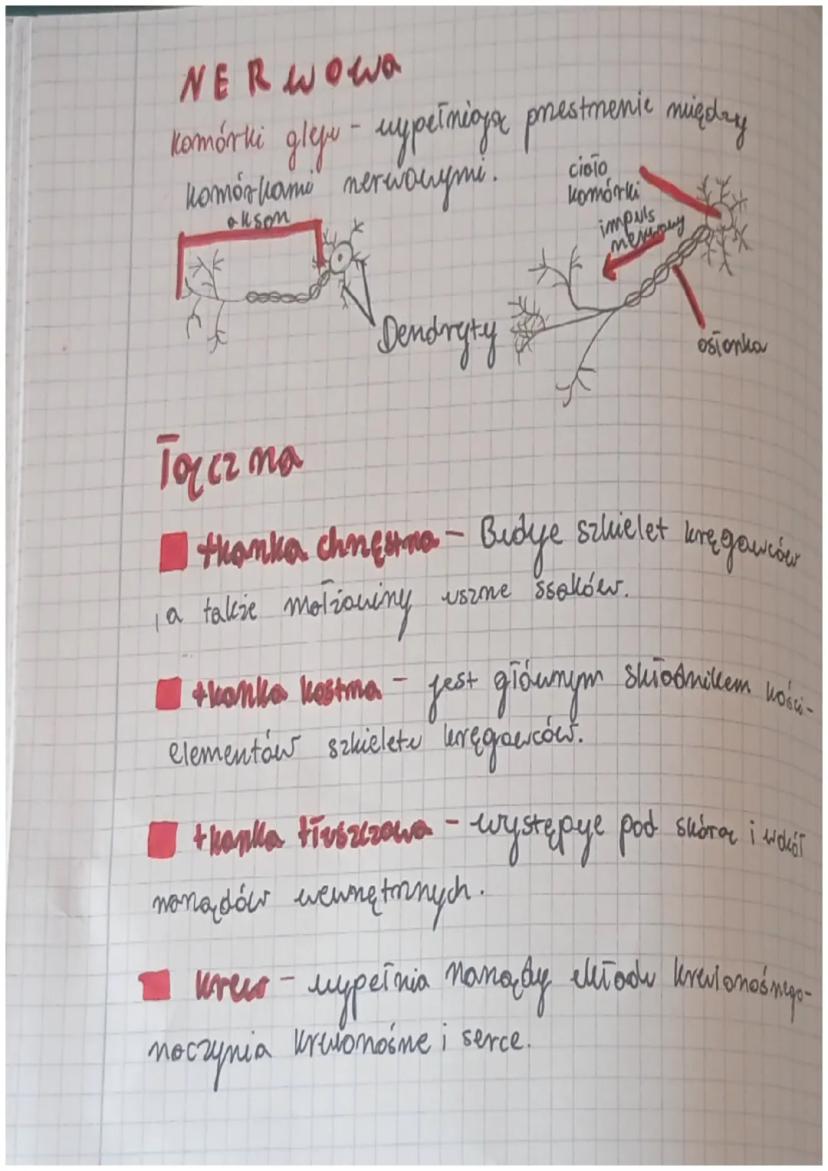 NERWOWA
komórki gleju - wypełniają przestrzenie między
komórkami nerwowymi.
akson
Dendryty
ciało
komórki
impuls
nerwowy
osłonka
Łączna
tkanka chrzęstna - Buduje szkielet kręgowców
, a także małżowiny uszne ssaków.
tkanka kostna - jest głównym składnikem kości-
elementów szkieletu kręgowców.
tkanka tłuszczowa - występuje pod skórą i wokół
narządów wewnętrznych.
krew - wypełnia narządy układu krwionośnego-
naczynia krwionośne i serce.